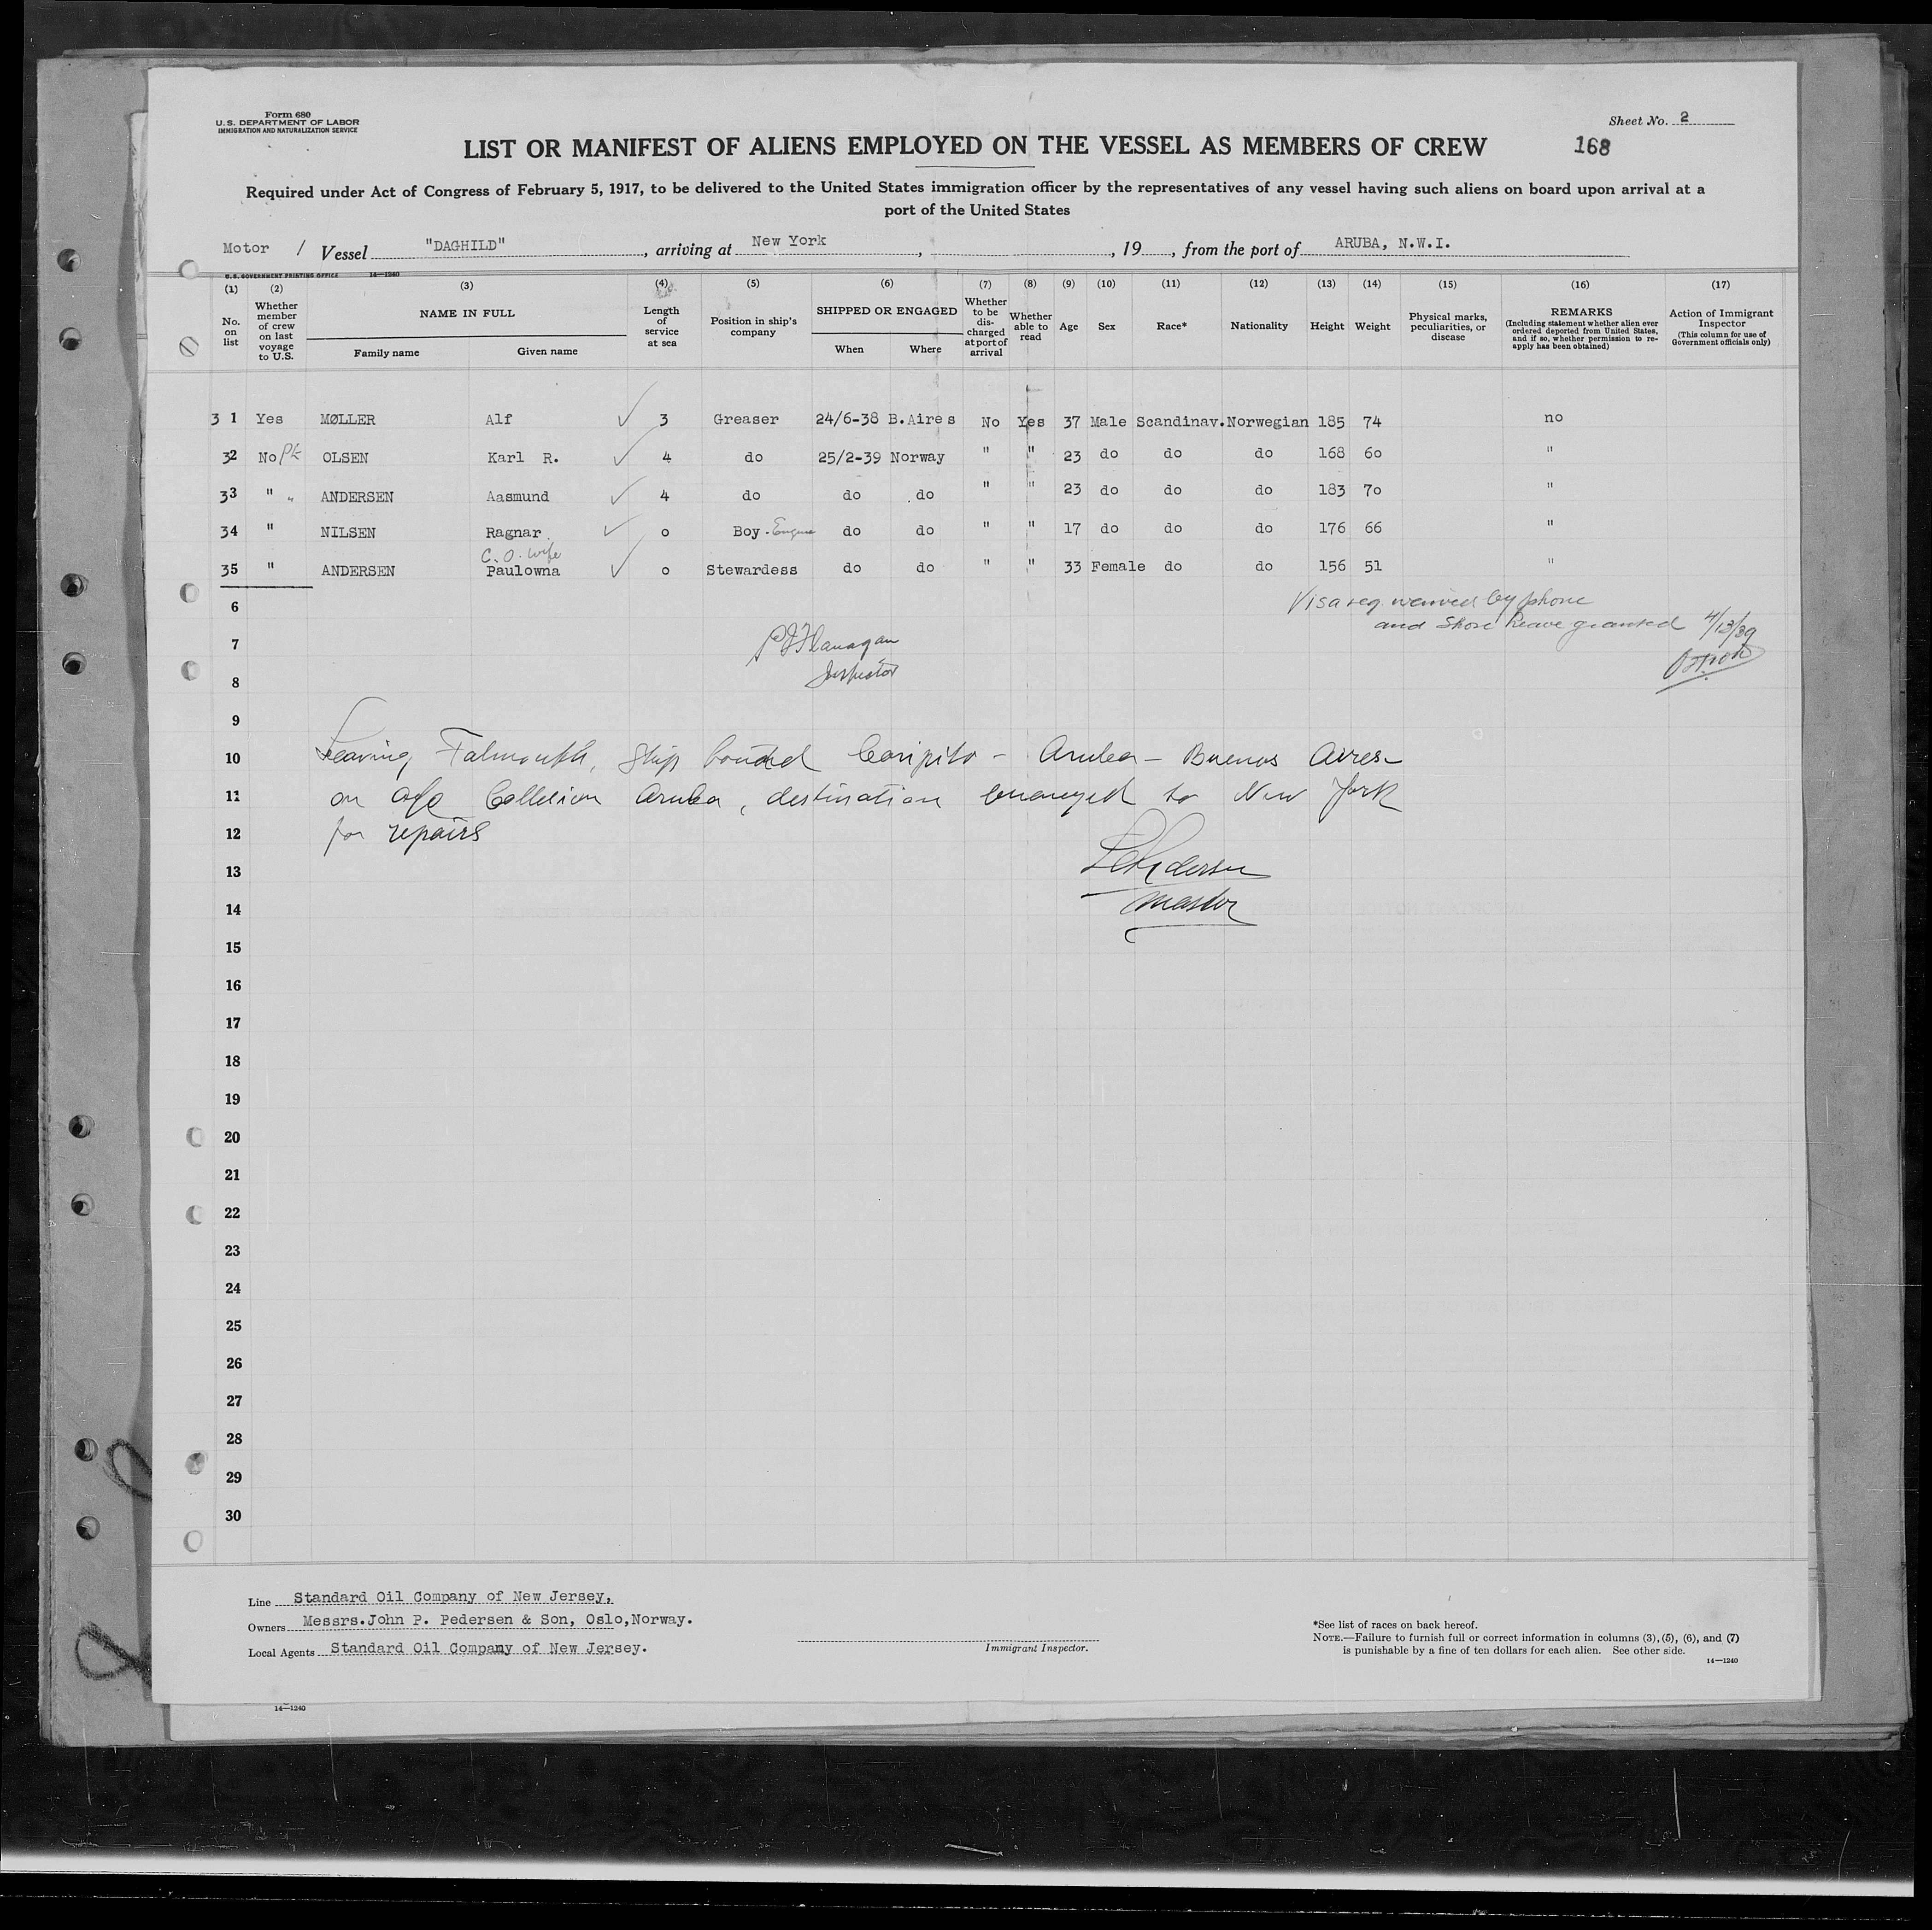 Form 680
U. S. DEPARTMENT OF LABOR
IMMIGRATION AND NATURALIZATION SERVICE
Sheet No. 2
168
LIST OR MANIFEST OF ALIENS EMPLOYED ON THE VESSEL AS MEMBERS OF CREW
Required under Act of Congress of February 5, 1917, to be delivered to the United States immigration officer by the representatives of any vessel having such aliens on board upon arrival at a
port of the United States
Motor / Vessel "DAGHILD", arriving at New York, , 19 , from the port of ARUBA, N.W.I.
U. S. GOVERNMENT PRINTING OFFICE 14—1240
(1) No. on list
(2) Whether member of crew on last voyage to U.S.
(3) NAME IN FULL Family name Given name
(4) Length of service at sea
(5) Position in ship's company
(6) SHIPPED OR ENGAGED When Where
(7) Whether to be discharged at port of arrival
(8) Whether able to read
(9) Age
(10) Sex
(11) Race*
(12) Nationality
(13) Height
(14) Weight
(15) Physical marks, peculiarities, or disease
(16) REMARKS (Including statement whether alien ever ordered deported from United States, and if so, whether permission to re-apply has been obtained)
(17) Action of Immigrant Inspector (This column for use of Government officials only)
3 1 Yes MØLLER Alf 3 Greaser 24/6-38 B.Aires No Yes 37 Male Scandinav. Norwegian 185 74 no
32 No OLSEN Karl R. 4 do 25/2-39 Norway " " 23 do do do 168 60 "
33 " " ANDERSEN Aasmund 4 do do do " " 23 do do do 183 70 "
34 " NILSEN Ragnar 0 Boy - Engine do do " " 17 do do do 176 66 "
C. O. wife
35 " ANDERSEN Paulowna 0 Stewardess do do " " 33 Female do do 156 51 "
6 Visa req. waived by phone
and Shore Leave granted 4/13/39
7 Flanagan
Inspector
8
9
10 Leaving Falmouth, ship bound Caripito - Aruba - Buenos Aires
11 on a/c Collision Aruba, destination changed to New York
12 for repairs
13
14 Master
15
16
17
18
19
20
21
22
23
24
25
26
27
28
29
30
Line Standard Oil Company of New Jersey,
Owners Messrs.John P. Pedersen & Son, Oslo,Norway.
Local Agents Standard Oil Company of New Jersey.
Immigrant Inspector.
*See list of races on back hereof.
NOTE.—Failure to furnish full or correct information in columns (3), (5), (6), and (7)
is punishable by a fine of ten dollars for each alien. See other side.
14—1240
14—1240